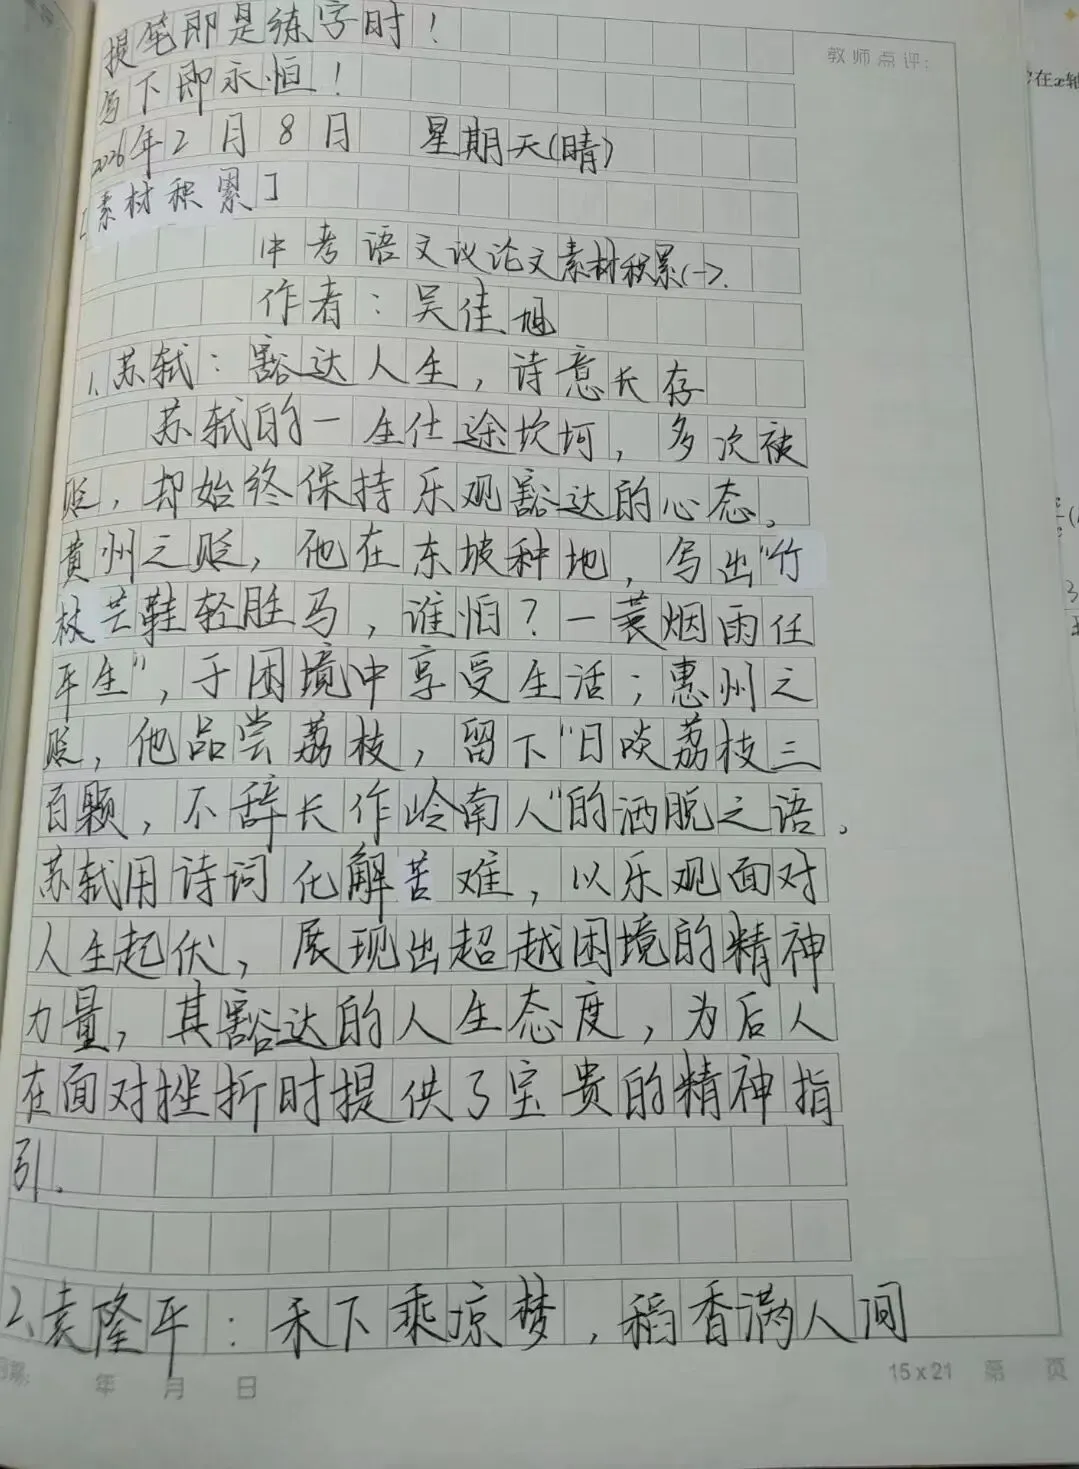 提笔即是练字时！
写下即永恒！
教师点评：
2026年2月8日 星期天(晴)
[素材积累]
中考语文议论文素材积累(一).
作者：吴佳旭
1.苏轼：豁达人生，诗意长存
苏轼的一生仕途坎坷，多次被
贬，却始终保持乐观豁达的心态。
黄州之贬，他在东坡种地，写出"竹
杖芒鞋轻胜马，谁怕？一蓑烟雨任
平生"，于困境中享受生活；惠州之
贬，他品尝荔枝，留下"日啖荔枝三
百颗，不辞长作岭南人"的洒脱之语。
苏轼用诗词化解苦难，以乐观面对
人生起伏，展现出超越困境的精神
力量，其豁达的人生态度，为后人
在面对挫折时提供了宝贵的精神指
引。
2、袁隆平：禾下乘凉梦，稻香满人间
年 月 日
15x21 第 页
在x轴